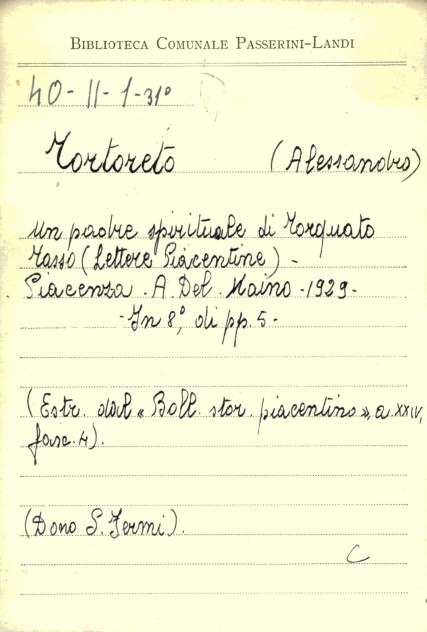 BIBLIOTECA COMUNALE PASSERINI-LANDI
40-II-1-31°
Tortoreto (Alessandro)
Un padre spirituale di Torquato
Tasso (Lettere Piacentine) -
Piacenza. A. Del Maino - 1929 -
- In 8°, di pp. 5 -
(Estr. dal « Boll. stor. piacentino », a. XXIV,
fasc. 4).
(Dono S. Fermi).
C